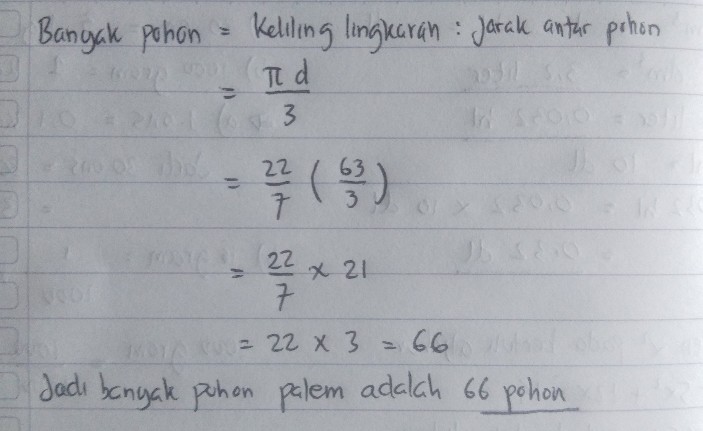 Banyak pohon = Keliling lingkaran : Jarak antar pohon
= π d / 3
= 22/7 ( 63/3 )
= 22/7 × 21
= 22 × 3 = 66
Jadi banyak pohon palem adalah 66 pohon